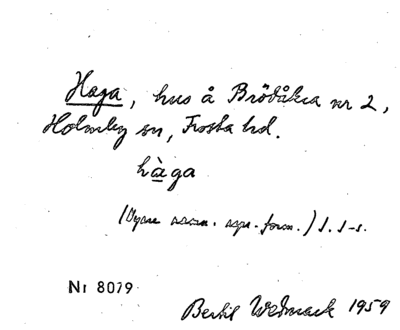 Haga, hus å Brödåkra nr 2,
Holmby sn, Frosta hd.
hàga
(Yngre namn. upp. form.) J. J-s.
Nr 8079
Bertil Wedmark 1959